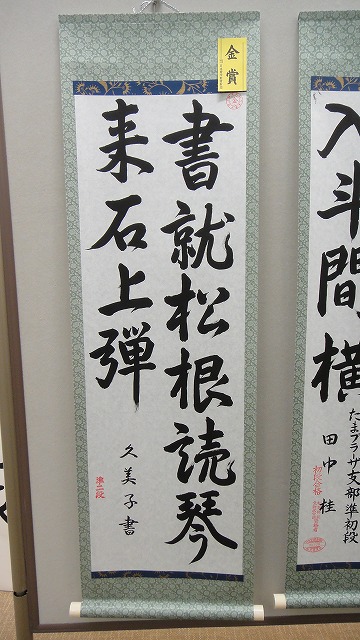 金賞
書就松根読琴
来石上弾
久美子書
準二段
入斗間横
たまプラザ支部準初段
田中桂
初段合格